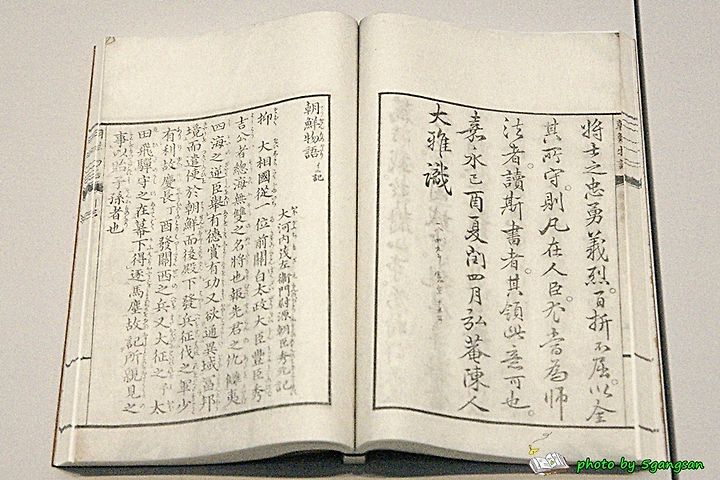 將士之忠勇義烈。百折不屈。以全
其所守。則凡在人臣。尤當為師
法者。讀斯書者。其領此意可也。
嘉永己酉夏閏四月弘菴陳人
大雅識
朝鮮物語
大河内茂左衛門尉源朝臣秀元記
抑 大相國從一位前關白太政大臣豐臣秀
吉公者總海無雙之名將也報先君之仇讎夷
四海之逆臣舉有德賞有功又欲通異域富邦
境而遣使於朝鮮而後殿下發兵征伐之畢少
有利故慶長丁酉發關西之兵又大征之予太
田飛驒守之在幕下得逐馬塵故記所親見之
事以貽子孫者也
photo by 5gangsan